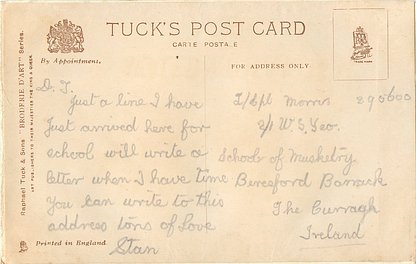 TUCK'S POST CARD
CARTE POSTALE
By Appointment.
FOR ADDRESS ONLY
TRADE MARK
Raphael Tuck & Sons "BRODERIE D'ART" Series.
ART PUBLISHERS TO THEIR MAJESTIES THE KING & QUEEN.
D. T.
Just a line I have
Just arrived here for
school will write a
letter when I have time
You can write to this
address tons of Love
Stan
Printed in England
L/Cpl Morris 395600
2/1 W.S. Yeo.
School of Musketry
Beresford Barrack
The Curragh
Ireland